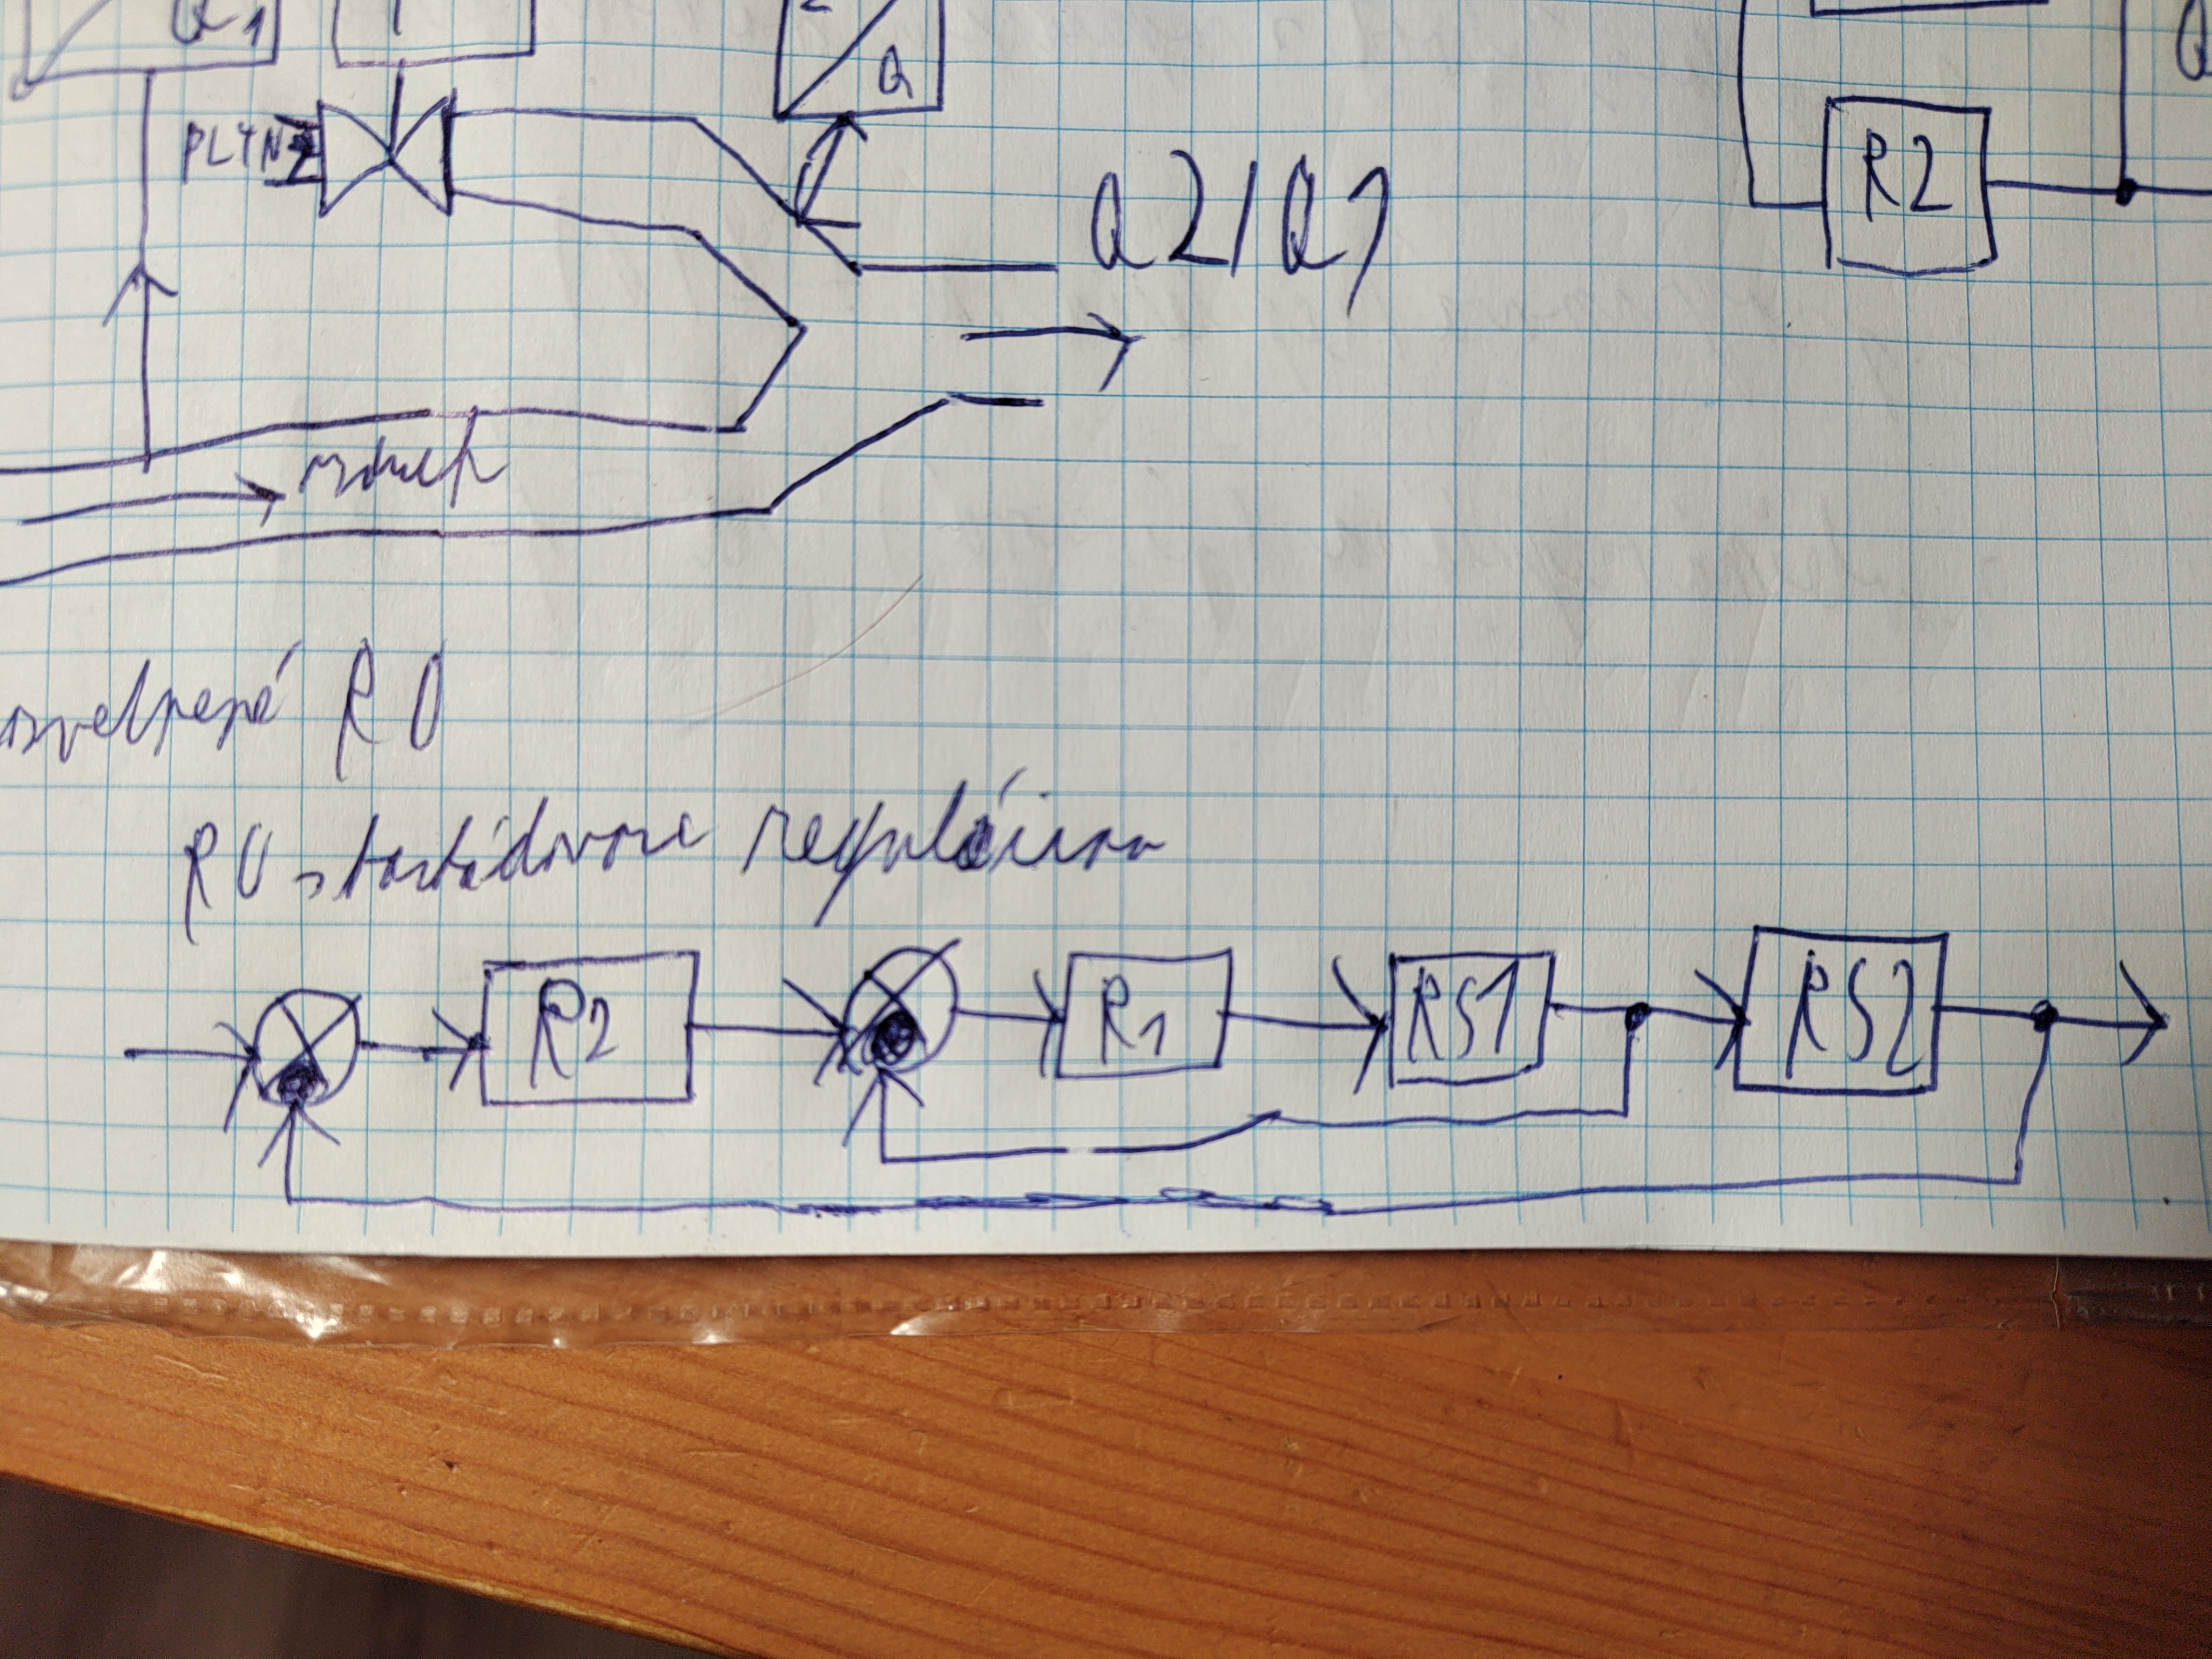 Q1
Q
Q
PLYN
R2
Q2/Q1
vzduch
rozvětvené RO
RO s kaskádovou regulací
R2 R1 RS1 RS2